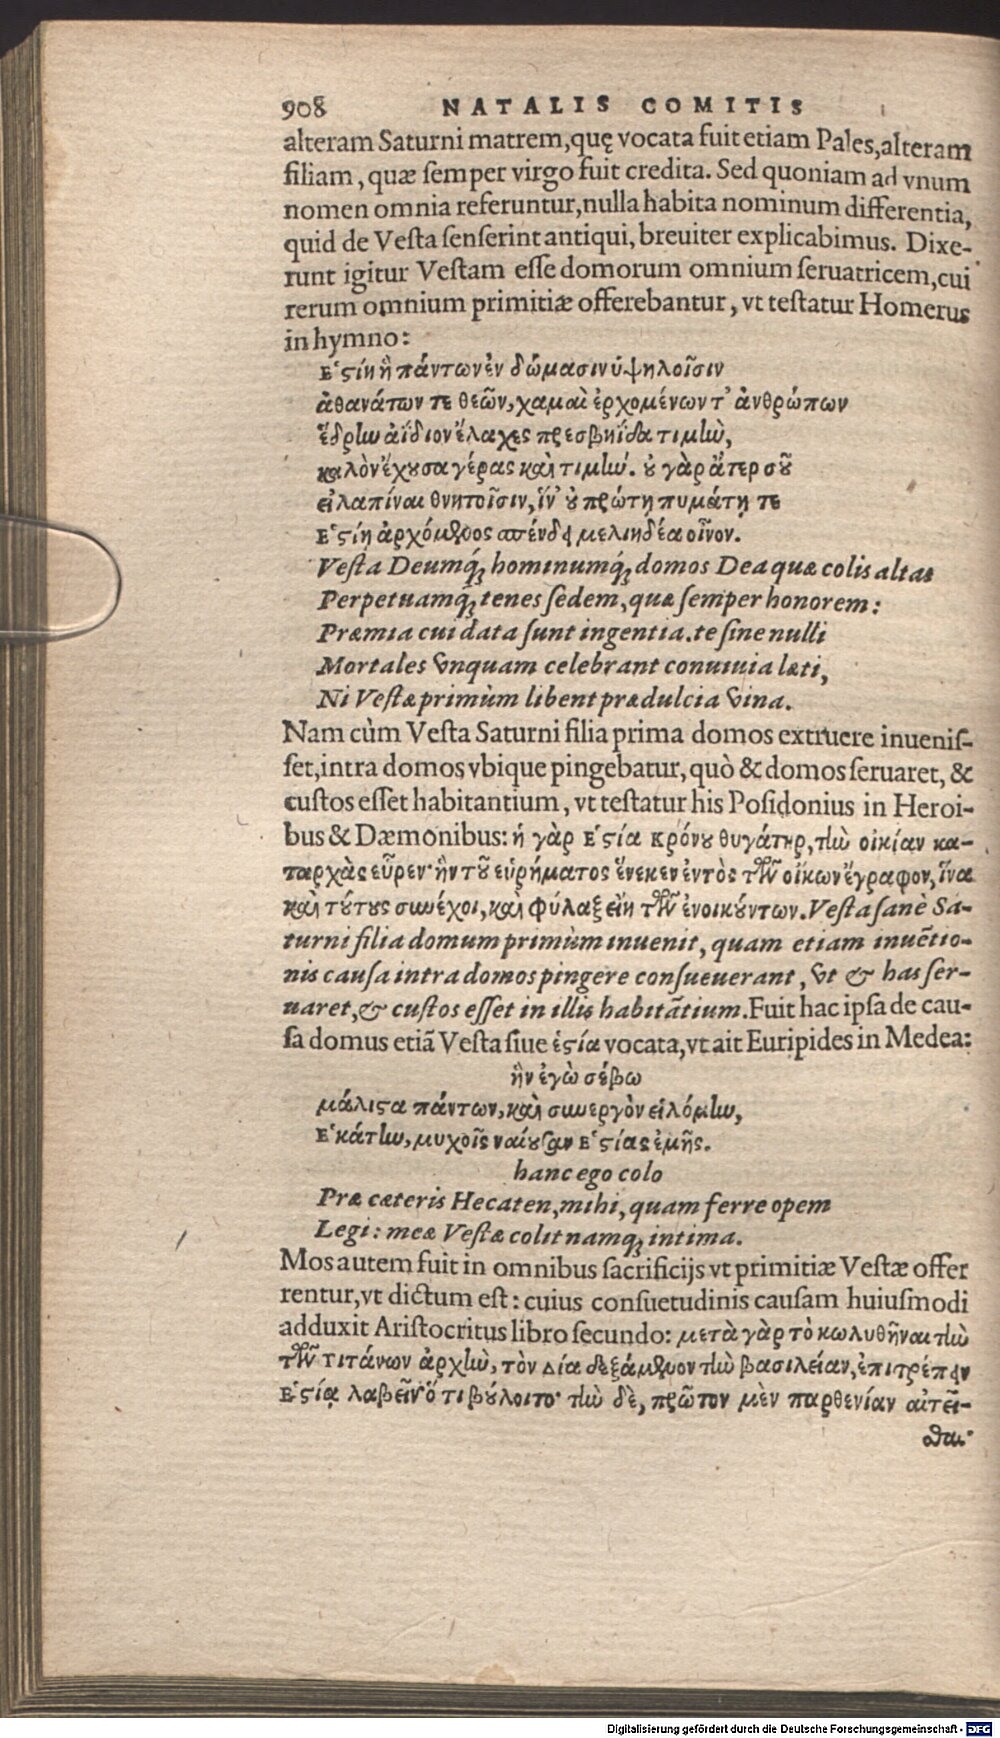 908 NATALIS COMITIS
alteram Saturni matrem,quę vocata fuit etiam Pales,alteram
filiam, quæ semper virgo fuit credita. Sed quoniam ad vnum
nomen omnia referuntur,nulla habita nominum differentia,
quid de Vesta senserint antiqui, breuiter explicabimus. Dixe-
runt igitur Vestam esse domorum omnium seruatricem,cui
rerum omnium primitiæ offerebantur, vt testatur Homerus
in hymno:
Ἑστίη ἣ πάντων ἐν δώμασιν ὑψηλοῖσιν
ἀθανάτων τε θεῶν, χαμαὶ ἐρχομένων τ' ἀνθρώπων
ἕδρην ἀΐδιον ἔλαχες πρεσβηΐδα τιμὴν,
καλὸν ἔχουσα γέρας καὶ τιμήν. οὐ γὰρ ἄτερ σοῦ
εἰλαπίναι θνητοῖσιν, ἵν' οὐ πρώτῃ πυμάτῃ τε
Ἑστίῃ ἀρχόμενος σπένδει μελιηδέα οἶνον.
Vesta Deumq́; hominumq́; domos Dea quæ colis altas
Perpetuamq́; tenes sedem, quæ semper honorem:
Præmia cui data sunt ingentia. te sine nulli
Mortales vnquam celebrant conuiuia læti,
Ni Vestæ primùm libent prædulcia vina.
Nam cùm Vesta Saturni filia prima domos extruere inuenis-
set,intra domos vbique pingebatur, quò & domos seruaret, &
custos esset habitantium, vt testatur his Posidonius in Heroi-
bus & Dæmonibus: ἡ γὰρ Ἑστία Κρόνου θυγάτηρ, τὴν οἰκίαν κα-
ταρχὰς εὗρεν· ἣν τοῦ εὑρήματος ἕνεκεν ἐντὸς τῶν οἴκων ἔγραφον, ἵνα
καὶ τούτους συνέχοι, καὶ φύλαξ εἴη τῶν ἐνοικούντων. Vesta sanè Sa-
turni filia domum primùm inuenit, quam etiam inuẽtio-
nis causa intra domos pingere consueuerant, vt & has ser-
uaret, & custos esset in illis habitãtium. Fuit hac ipsa de cau-
sa domus etiã Vesta siue ἑστία vocata, vt ait Euripides in Medea:
ἣν ἐγὼ σέβω
μάλιστα πάντων, καὶ συνεργὸν εἱλόμην,
Ἑκάτην, μυχοῖς ναίουσαν Ἑστίας ἐμῆς.
hanc ego colo
Præ cæteris Hecaten, mihi, quam ferre opem
Legi: meæ Vestæ colit namq; intima.
Mos autem fuit in omnibus sacrificijs vt primitiæ Vestæ offer
rentur, vt dictum est: cuius consuetudinis causam huiusmodi
adduxit Aristocritus libro secundo: μετὰ γὰρ τὸ κωλυθῆναι τὴν
τῶν τιτάνων ἀρχὴν, τὸν Δία δεξάμενον τὴν βασιλείαν, ἐπιτρέπειν
Ἑστίᾳ λαβεῖν ὅ τι βούλοιτο· τὴν δὲ, πρῶτον μὲν παρθενίαν αἰτεῖ-
σθαι·
Digitalisierung gefördert durch die Deutsche Forschungsgemeinschaft - DFG